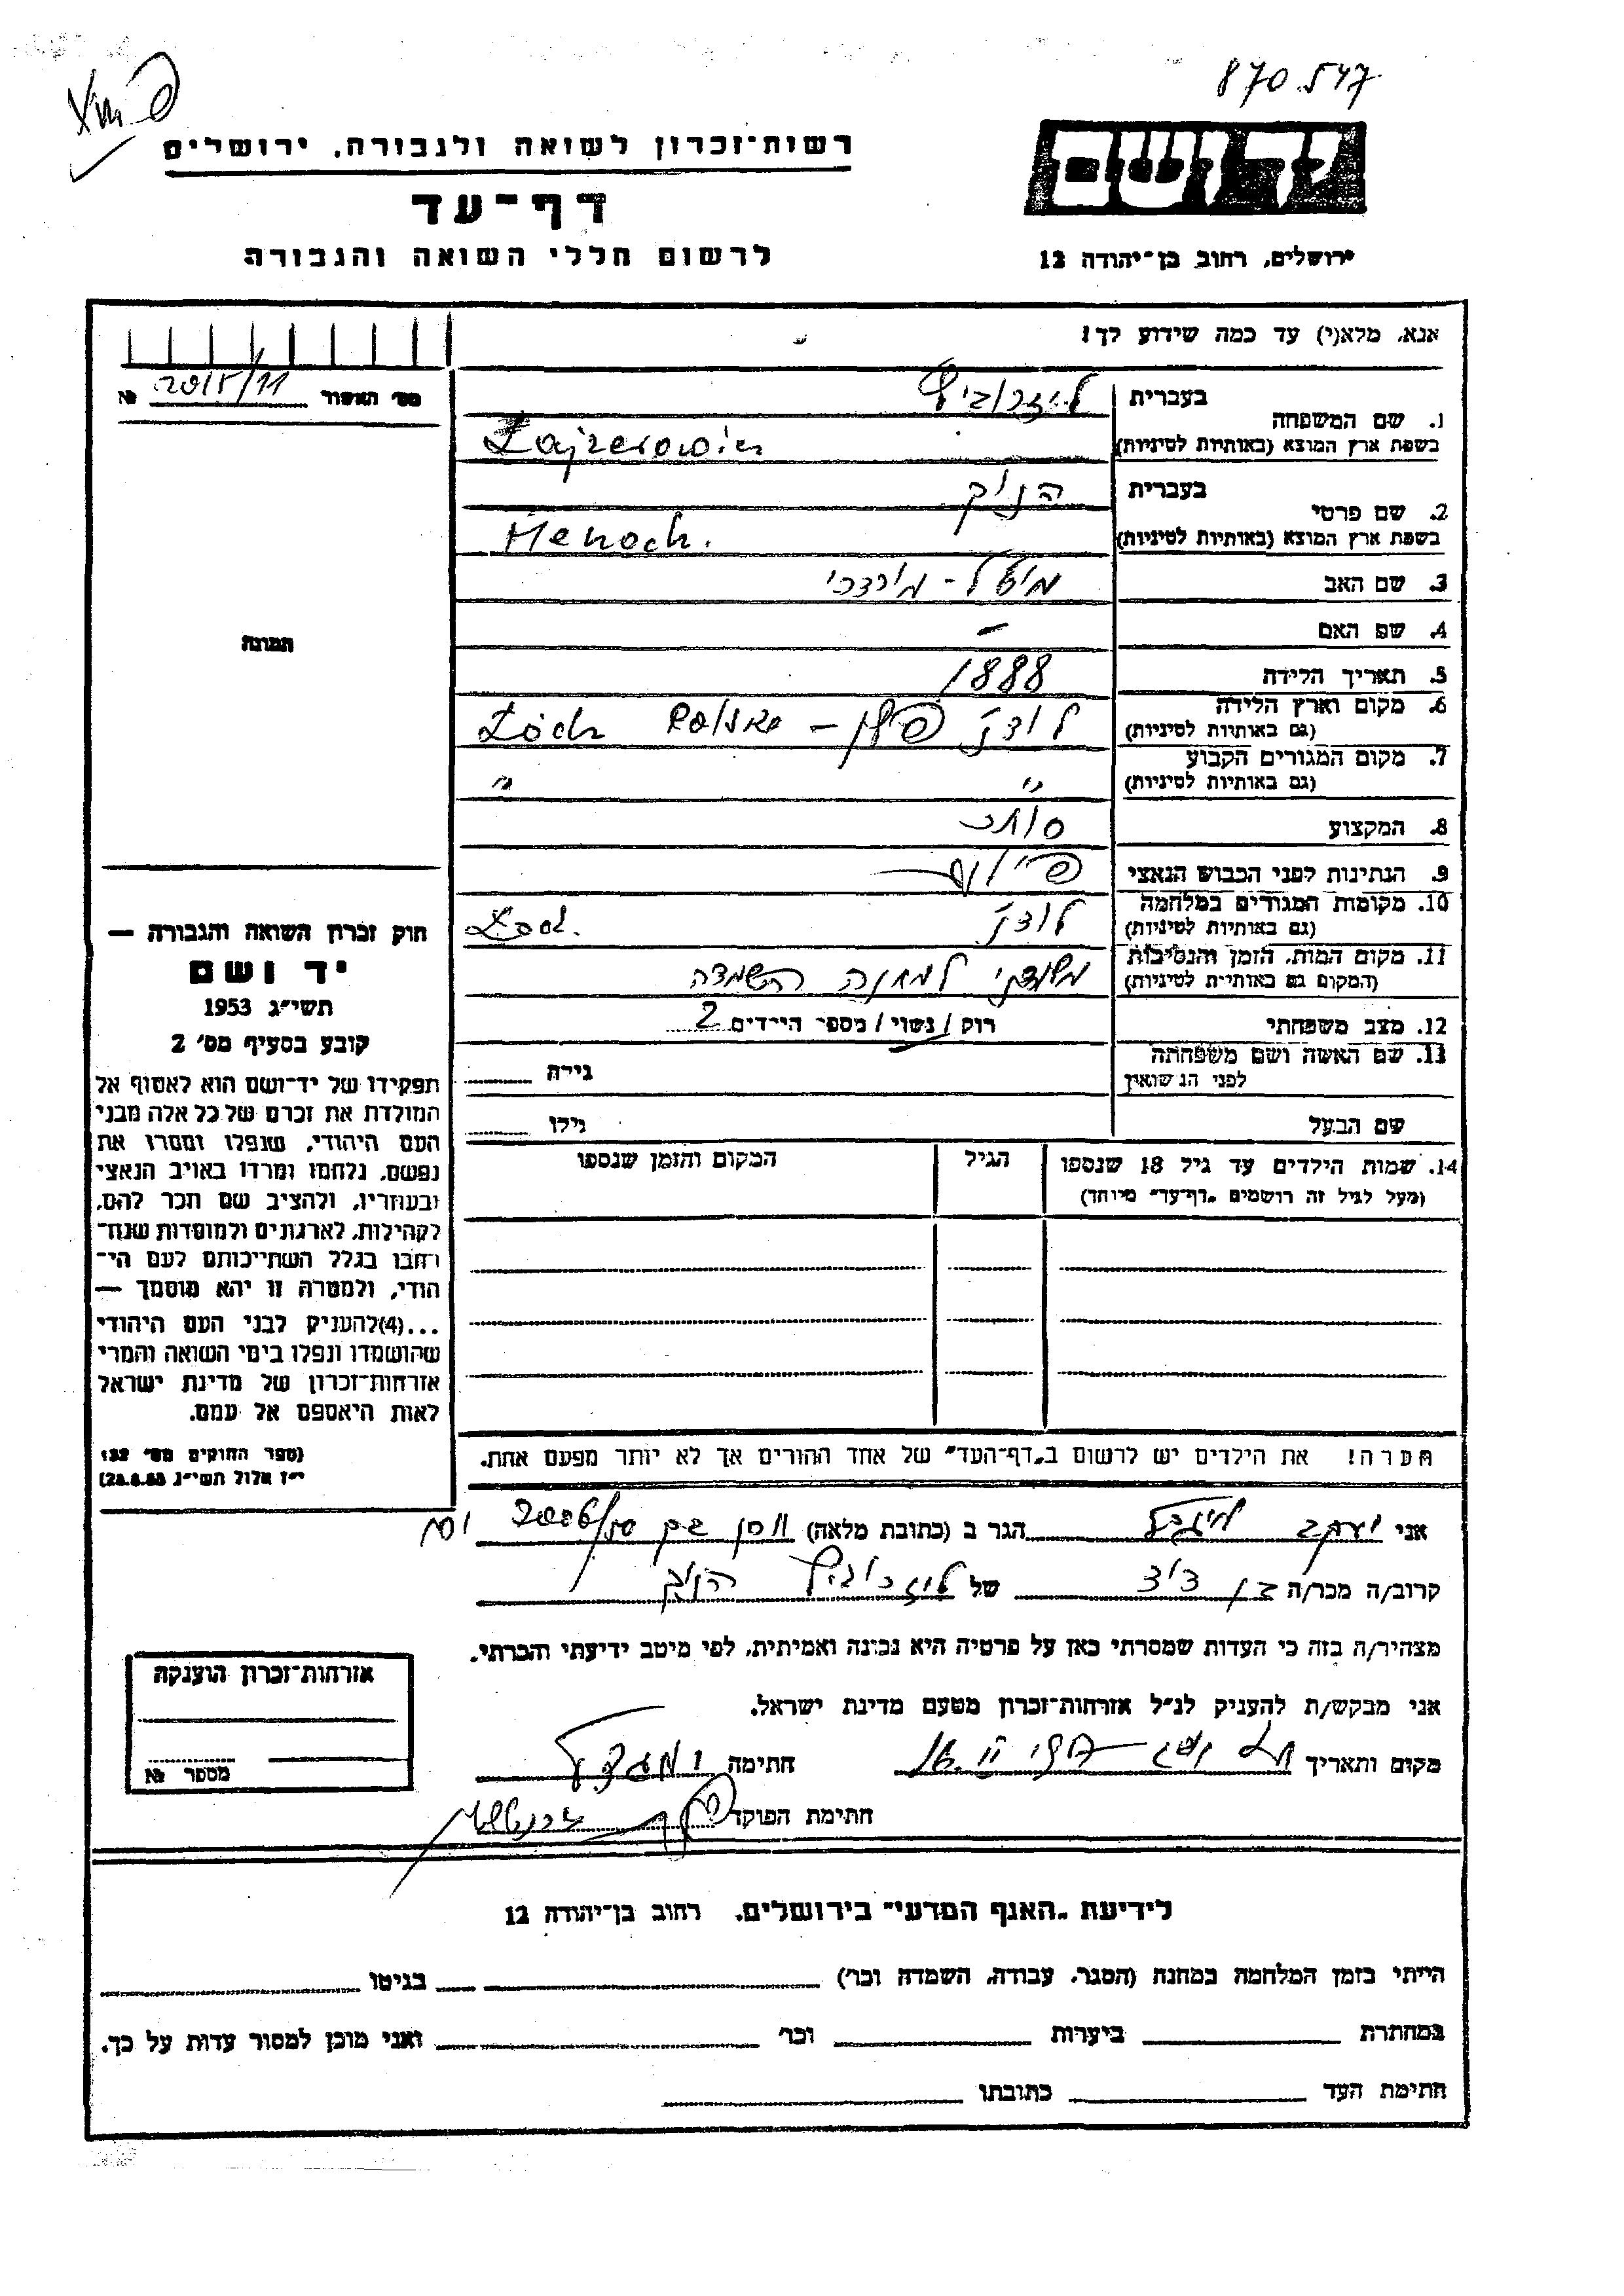 870.547
רשות־זכרון לשואה ולגבורה. ירושלים
ידושם
דף־עד
לרשום חללי השואה והגבורה
ירושלים, רחוב בן־יהודה 12
אנא, מלא(י) עד כמה שידוע לך!
מס' האשור 2015/11 №
בעברית
1. שם המשפחה
בשפת ארץ המוצא (באותיות לטיניות) Lajzerowicz
בעברית הנוך
2. שם פרטי
בשפת ארץ המוצא (באותיות לטיניות) Henoch.
3. שם האב - מורדכי
4. שם האם –
5. תאריך הלידה 1888
6. מקום וארץ הלידה לודז' פולין –
(גם באותיות לטיניות)
7. מקום המגורים הקבוע " "
(גם באותיות לטיניות)
8. המקצוע סוחר
9. הנתינות לפני הכבוש הנאצי
10. מקומות המגורים במלחמה לודז'
(גם באותיות לטיניות)
11. מקום המות, הזמן והנסיבות למחנה השמדה
(המקום גם באותיות לטיניות)
12. מצב משפחתי רוק / נשוי / מספר הילדים 2
13. שם האשה ושם משפחתה גילה
לפני הנשואין
שם הבעל גילו
14. שמות הילדים עד גיל 18 שנספו הגיל המקום והזמן שנספו
(מעל לגיל זה רושמים „דף־עד" מיוחד)
תמונה
חוק זכרון השואה והגבורה —
יד ושם
תשי״ג 1953
קובע בסעיף מס' 2
תפקידו של יד־ושם הוא לאסוף אל
המולדת את זכרם של כל אלה מבני
העם היהודי, שנפלו ומסרו את
נפשם, נלחמו ומרדו באויב הנאצי
ובעוזריו, ולהציב שם וזכר להם,
לקהילות, לארגונים ולמוסדות שנח־
רבו בגלל השתייכותם לעם הי־
הודי, ולמטרה זו יהא מוסמך —
...(4)להעניק לבני העם היהודי
שהושמדו ונפלו בימי השואה והמרי
אזרחות־זכרון של מדינת ישראל
לאות היאספם אל עמם.
(ספר החוקים מס' 132
י״ז אלול תשי״ג 28.8.53)
הערה! את הילדים יש לרשום ב„דף־העד" של אחד ההורים אך לא יותר מפעם אחת.
אני יעקב הגר ב (כתובת מלאה)
קרוב/ה מכר/ה בן דוד של הנוך
מצהיר/ה בזה כי העדות שמסרתי כאן על פרטיה היא נכונה ואמיתית, לפי מיטב ידיעתי והכרתי.
אני מבקש/ת להעניק לנ״ל אזרחות־זכרון מטעם מדינת ישראל.
מקום ותאריך חתימה
חתימת הפוקד
אזרחות־זכרון הוענקה
מספר №
לידיעת „האגף המדעי" בירושלים. רחוב בן־יהודה 12
הייתי בזמן המלחמה במחנה (הסגר, עבודה, השמדה וכו') בגיטו
במחתרת ביערות וכו' ואני מוכן למסור עדות על כך.
חתימת העד כתובתו